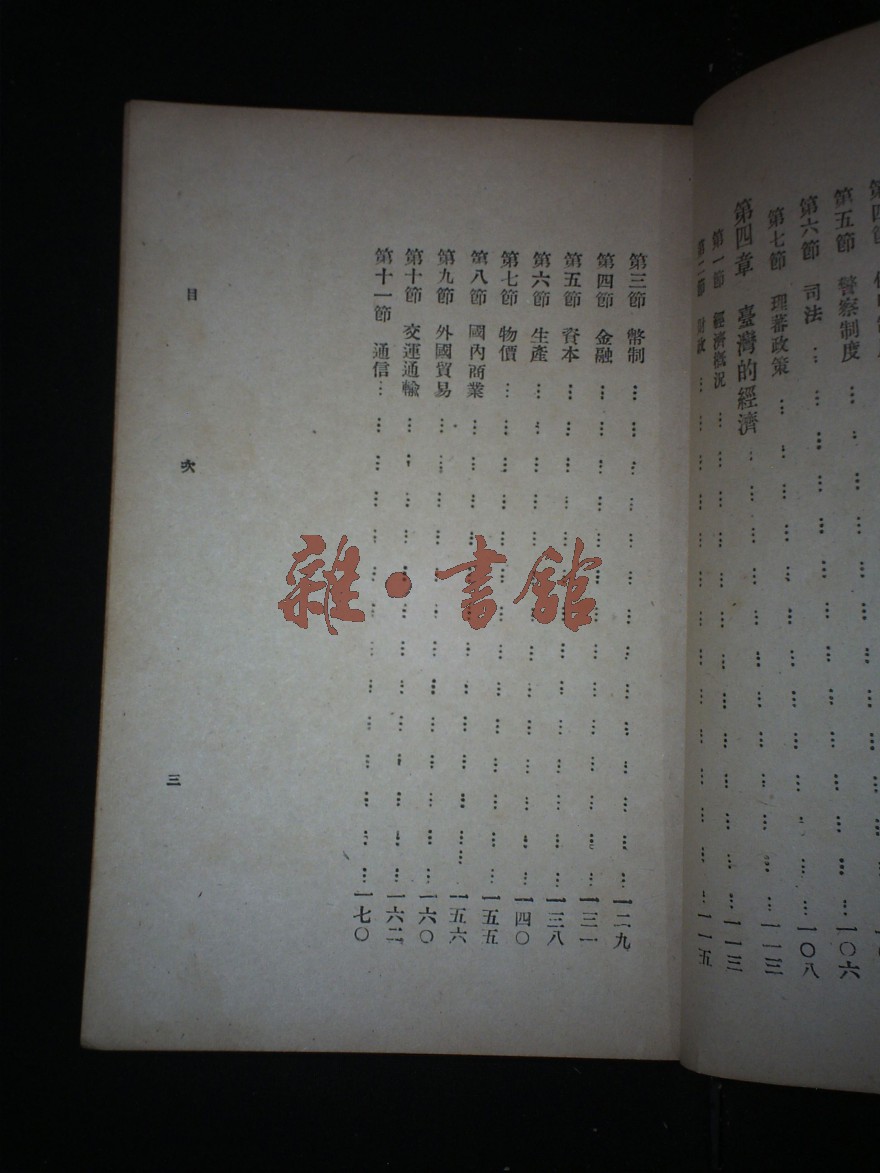 第五節 警察制度 … … … … … … … … … …
第六節 司法 … … … … … … … … … … 一〇六
第七節 理蕃政策 … … … … … … … … … 一〇八
第四章 臺灣的經濟 … … … … … … … … 一一三
第一節 經濟概況 … … … … … … … … … 一一三
第二節 財政 … … … … … … … … … … 一一五
第三節 幣制 … … … … … … … … … … 一二九
第四節 金融 … … … … … … … … … … 一三一
第五節 資本 … … … … … … … … … … 一三八
第六節 生產 … … … … … … … … … … 一四〇
第七節 物價 … … … … … … … … … … 一五五
第八節 國內商業 … … … … … … … … … 一五六
第九節 外國貿易 … … … … … … … … … 一六〇
第十節 交運通輸 … … … … … … … … … 一六二
第十一節 通信 … … … … … … … … … … 一七〇
目 次 三
雜·書館